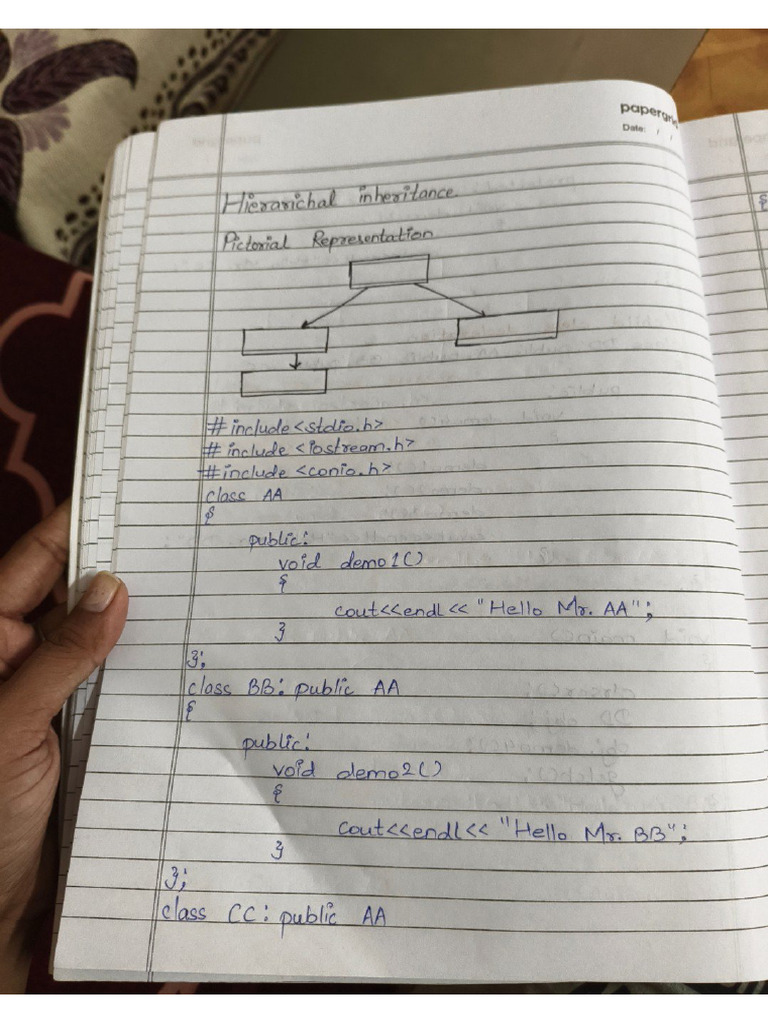 papergrid
Date: / /
Hierarichal inheritance
Pictorial Representation
#include<stdio.h>
#include<iostream.h>
#include<conio.h>
class AA
{
public:
void demo1()
{
cout<<endl<< "Hello Mr. AA";
}
};
class BB: public AA
{
public:
void demo2()
{
cout<<endl<< "Hello Mr. BB";
}
};
class CC: public AA